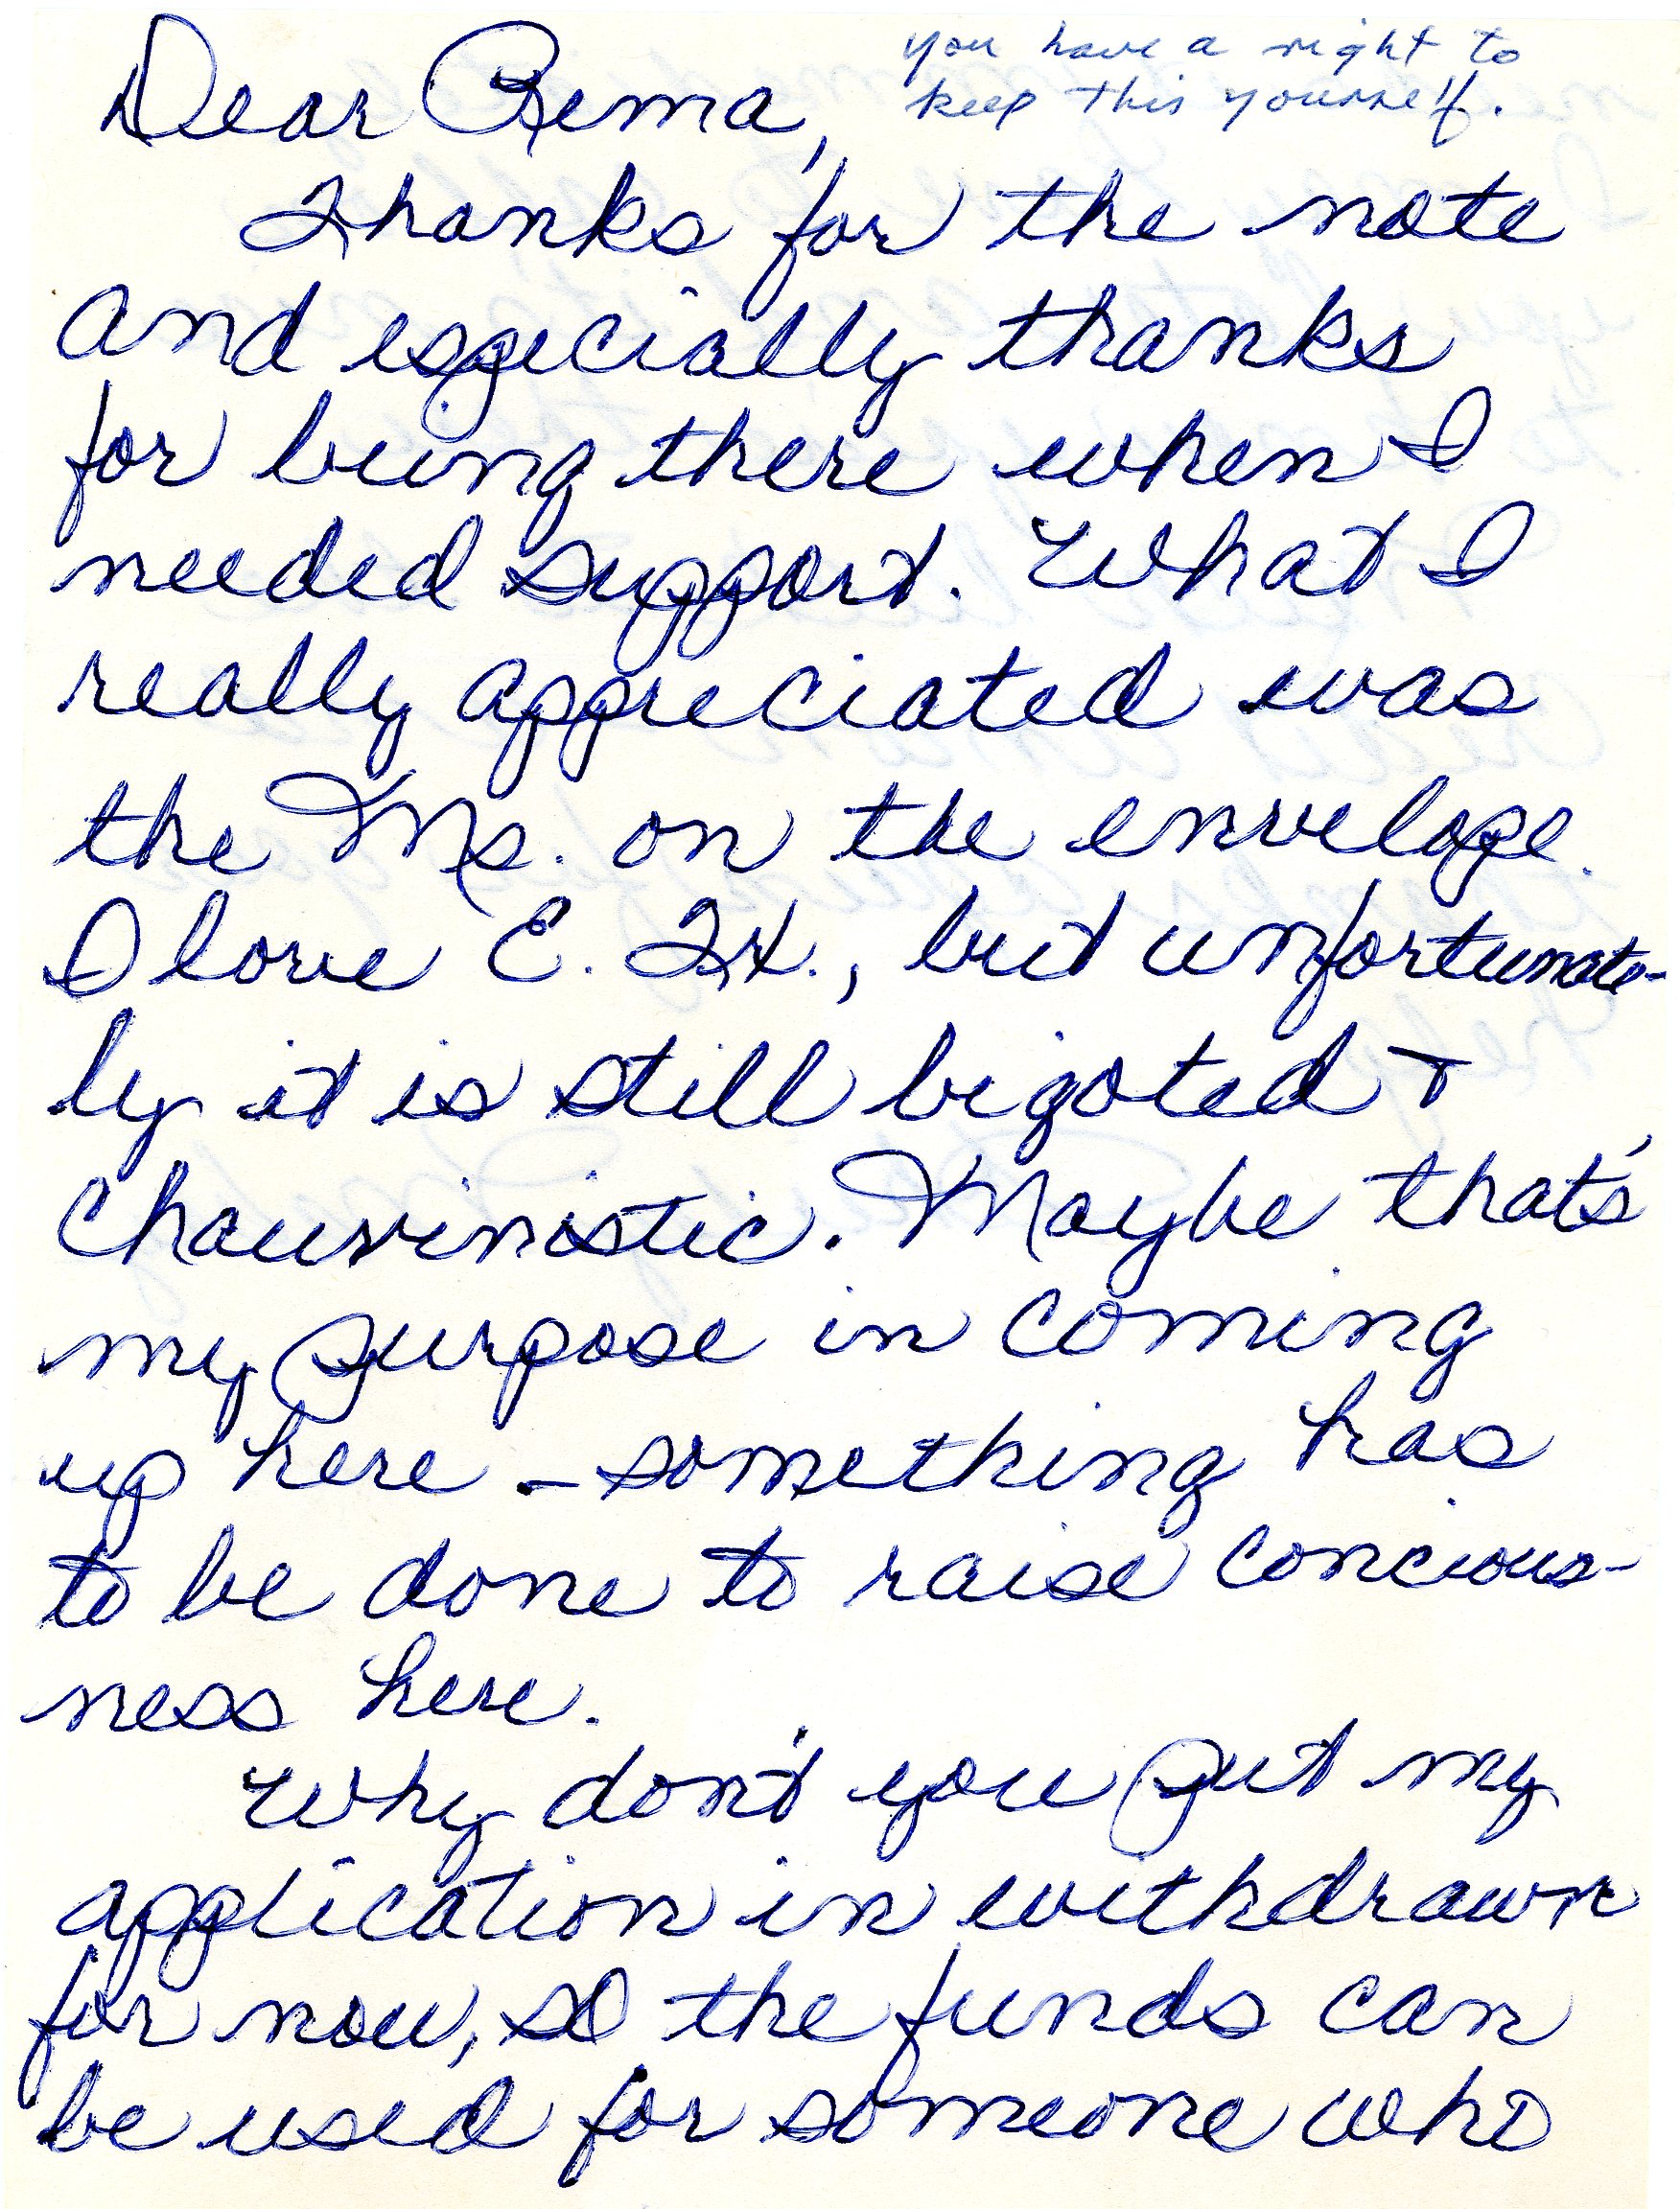 Dear Rema,
you have a right to
keep this yourself.
Thanks for the note
and especially thanks
for being there when I
needed support. What I
really appreciated was
the Ms. on the envelope.
I love E. Tx., but unfortunate-
ly it is still bigoted +
chauvinistic. Maybe that's
my purpose in coming
up here - something has
to be done to raise concious-
ness here.
Why don't you put my
application in withdrawn
for now, so the funds can
be used for someone who